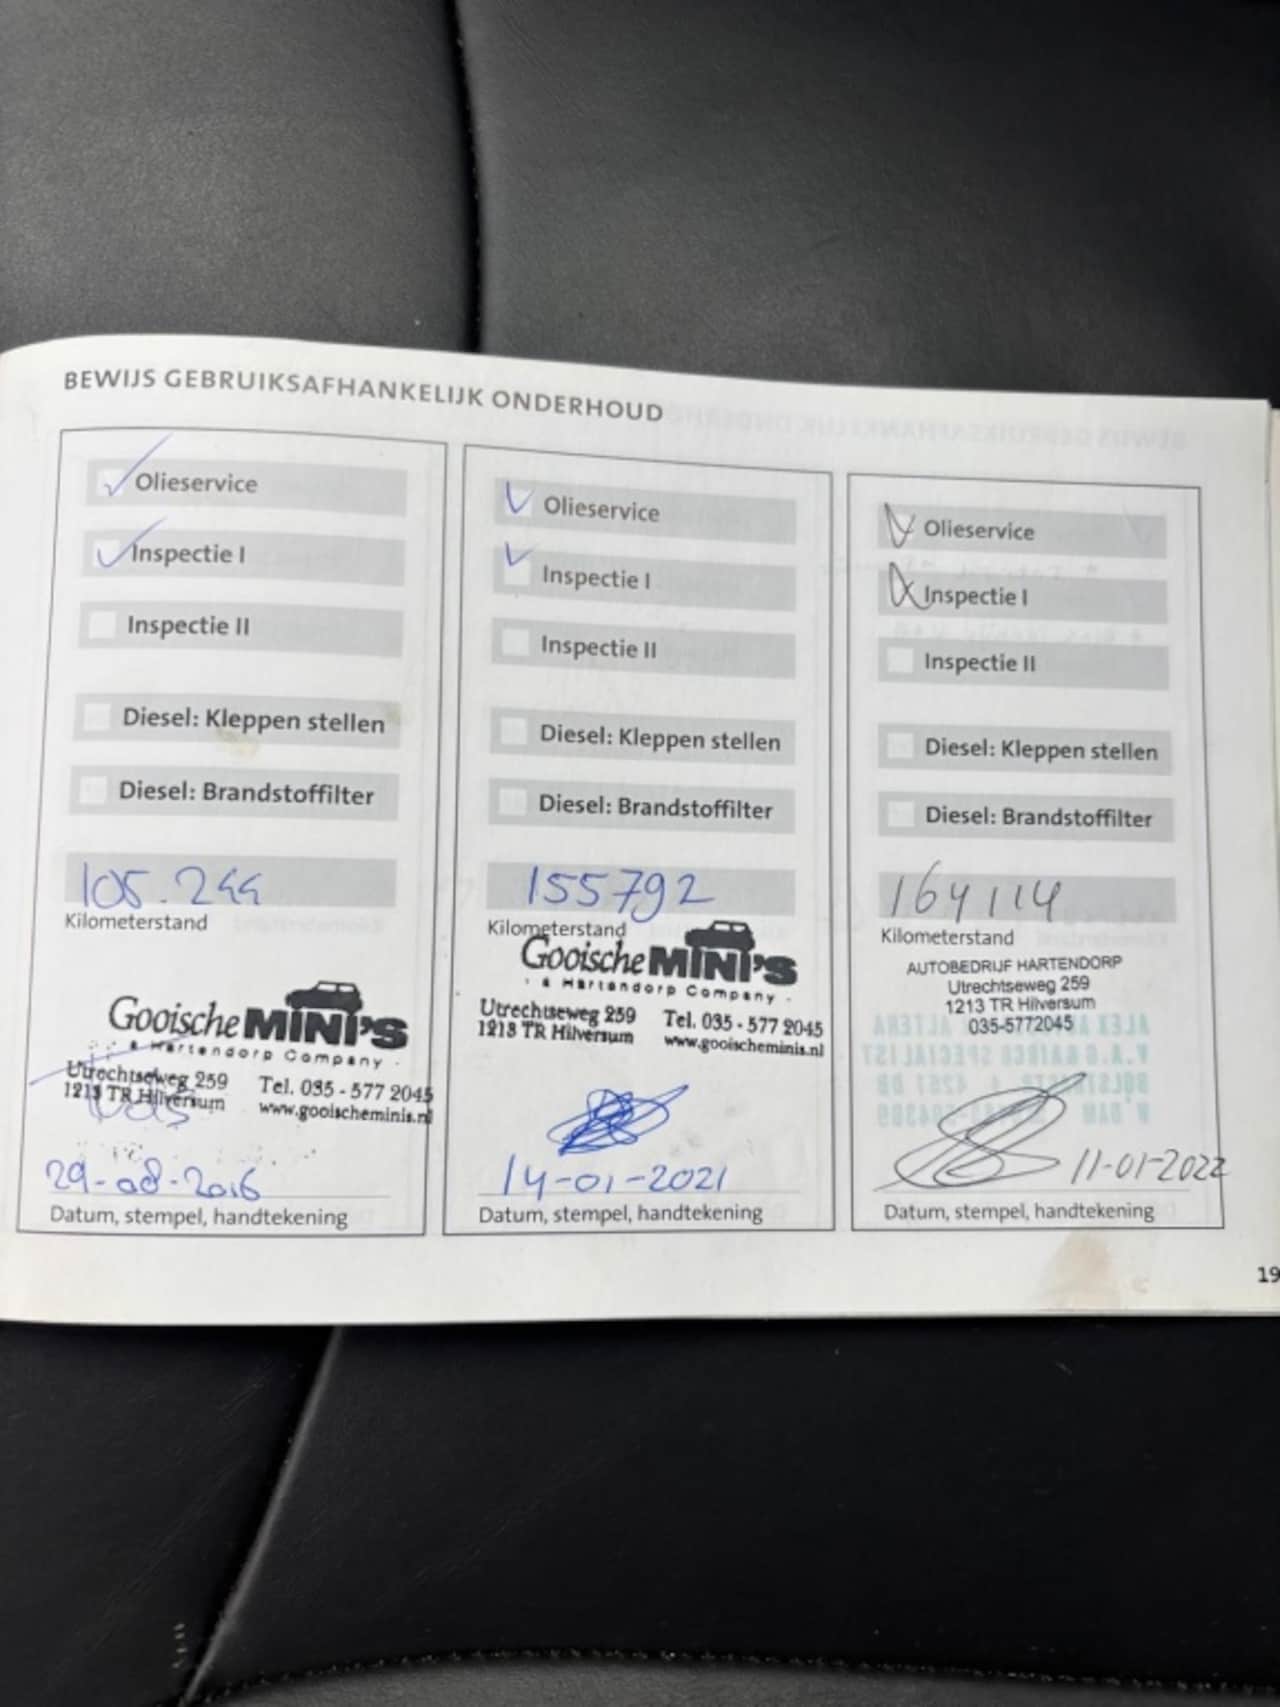 BEWIJS GEBRUIKSAFHANKELIJK ONDERHOUD
Olieservice
Inspectie I
Inspectie II
Diesel: Kleppen stellen
Diesel: Brandstoffilter
105.244
Kilometerstand
Gooische MINI'S
a Hartendorp Company
Utrechtseweg 259
1213 TR Hilversum
Tel. 035 - 577 2045
www.gooischeminis.nl
29-08-2016
Datum, stempel, handtekening
Olieservice
Inspectie I
Inspectie II
Diesel: Kleppen stellen
Diesel: Brandstoffilter
155792
Kilometerstand
Gooische MINI'S
a Hartendorp Company
Utrechtseweg 259
1213 TR Hilversum
Tel. 035 - 577 2045
www.gooischeminis.nl
14-01-2021
Datum, stempel, handtekening
Olieservice
Inspectie I
Inspectie II
Diesel: Kleppen stellen
Diesel: Brandstoffilter
164114
Kilometerstand
AUTOBEDRIJF HARTENDORP
Utrechtseweg 259
1213 TR Hilversum
035-5772045
11-01-2022
Datum, stempel, handtekening
19